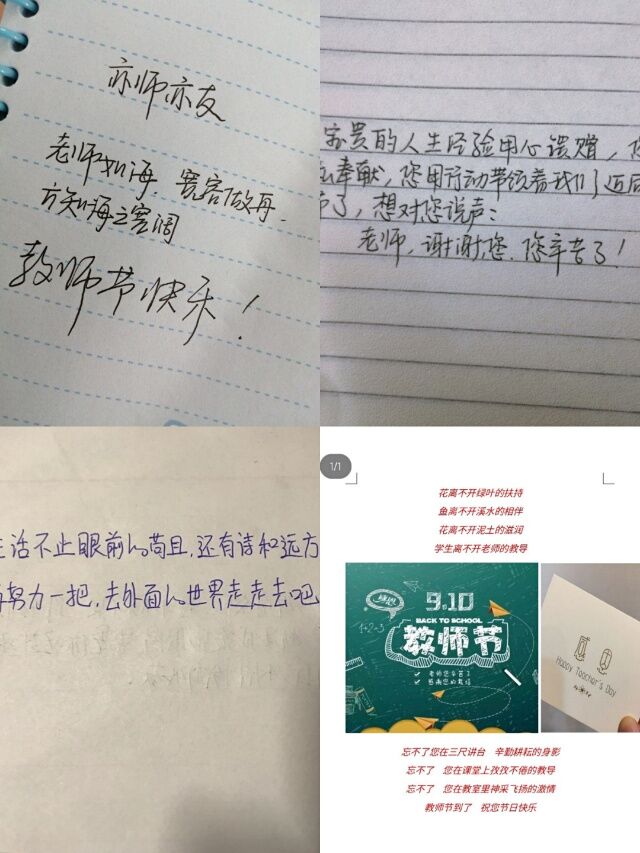 亦师亦友
老师如海,宽容做舟,
方知海之宽阔
教师节快乐!
宝贵的人生经验用心馈赠,
奉献,您用行动带领着我们
节了,想对您说声:
老师,谢谢您,您辛苦了!
生活不止眼前的苟且,还有诗和远方
再努力一把,去外面的世界走走去吧
1/1
花离不开绿叶的扶持
鱼离不开溪水的相伴
花离不开泥土的滋润
学生离不开老师的教导
9.10
BACK TO SCHOOL
教师节
1+2=3
老师您辛苦了
Happy Teacher's Day
忘不了您在三尺讲台 辛勤耕耘的身影
忘不了 您在课堂上孜孜不倦的教导
忘不了 您在教室里神采飞扬的激情
教师节到了 祝您节日快乐